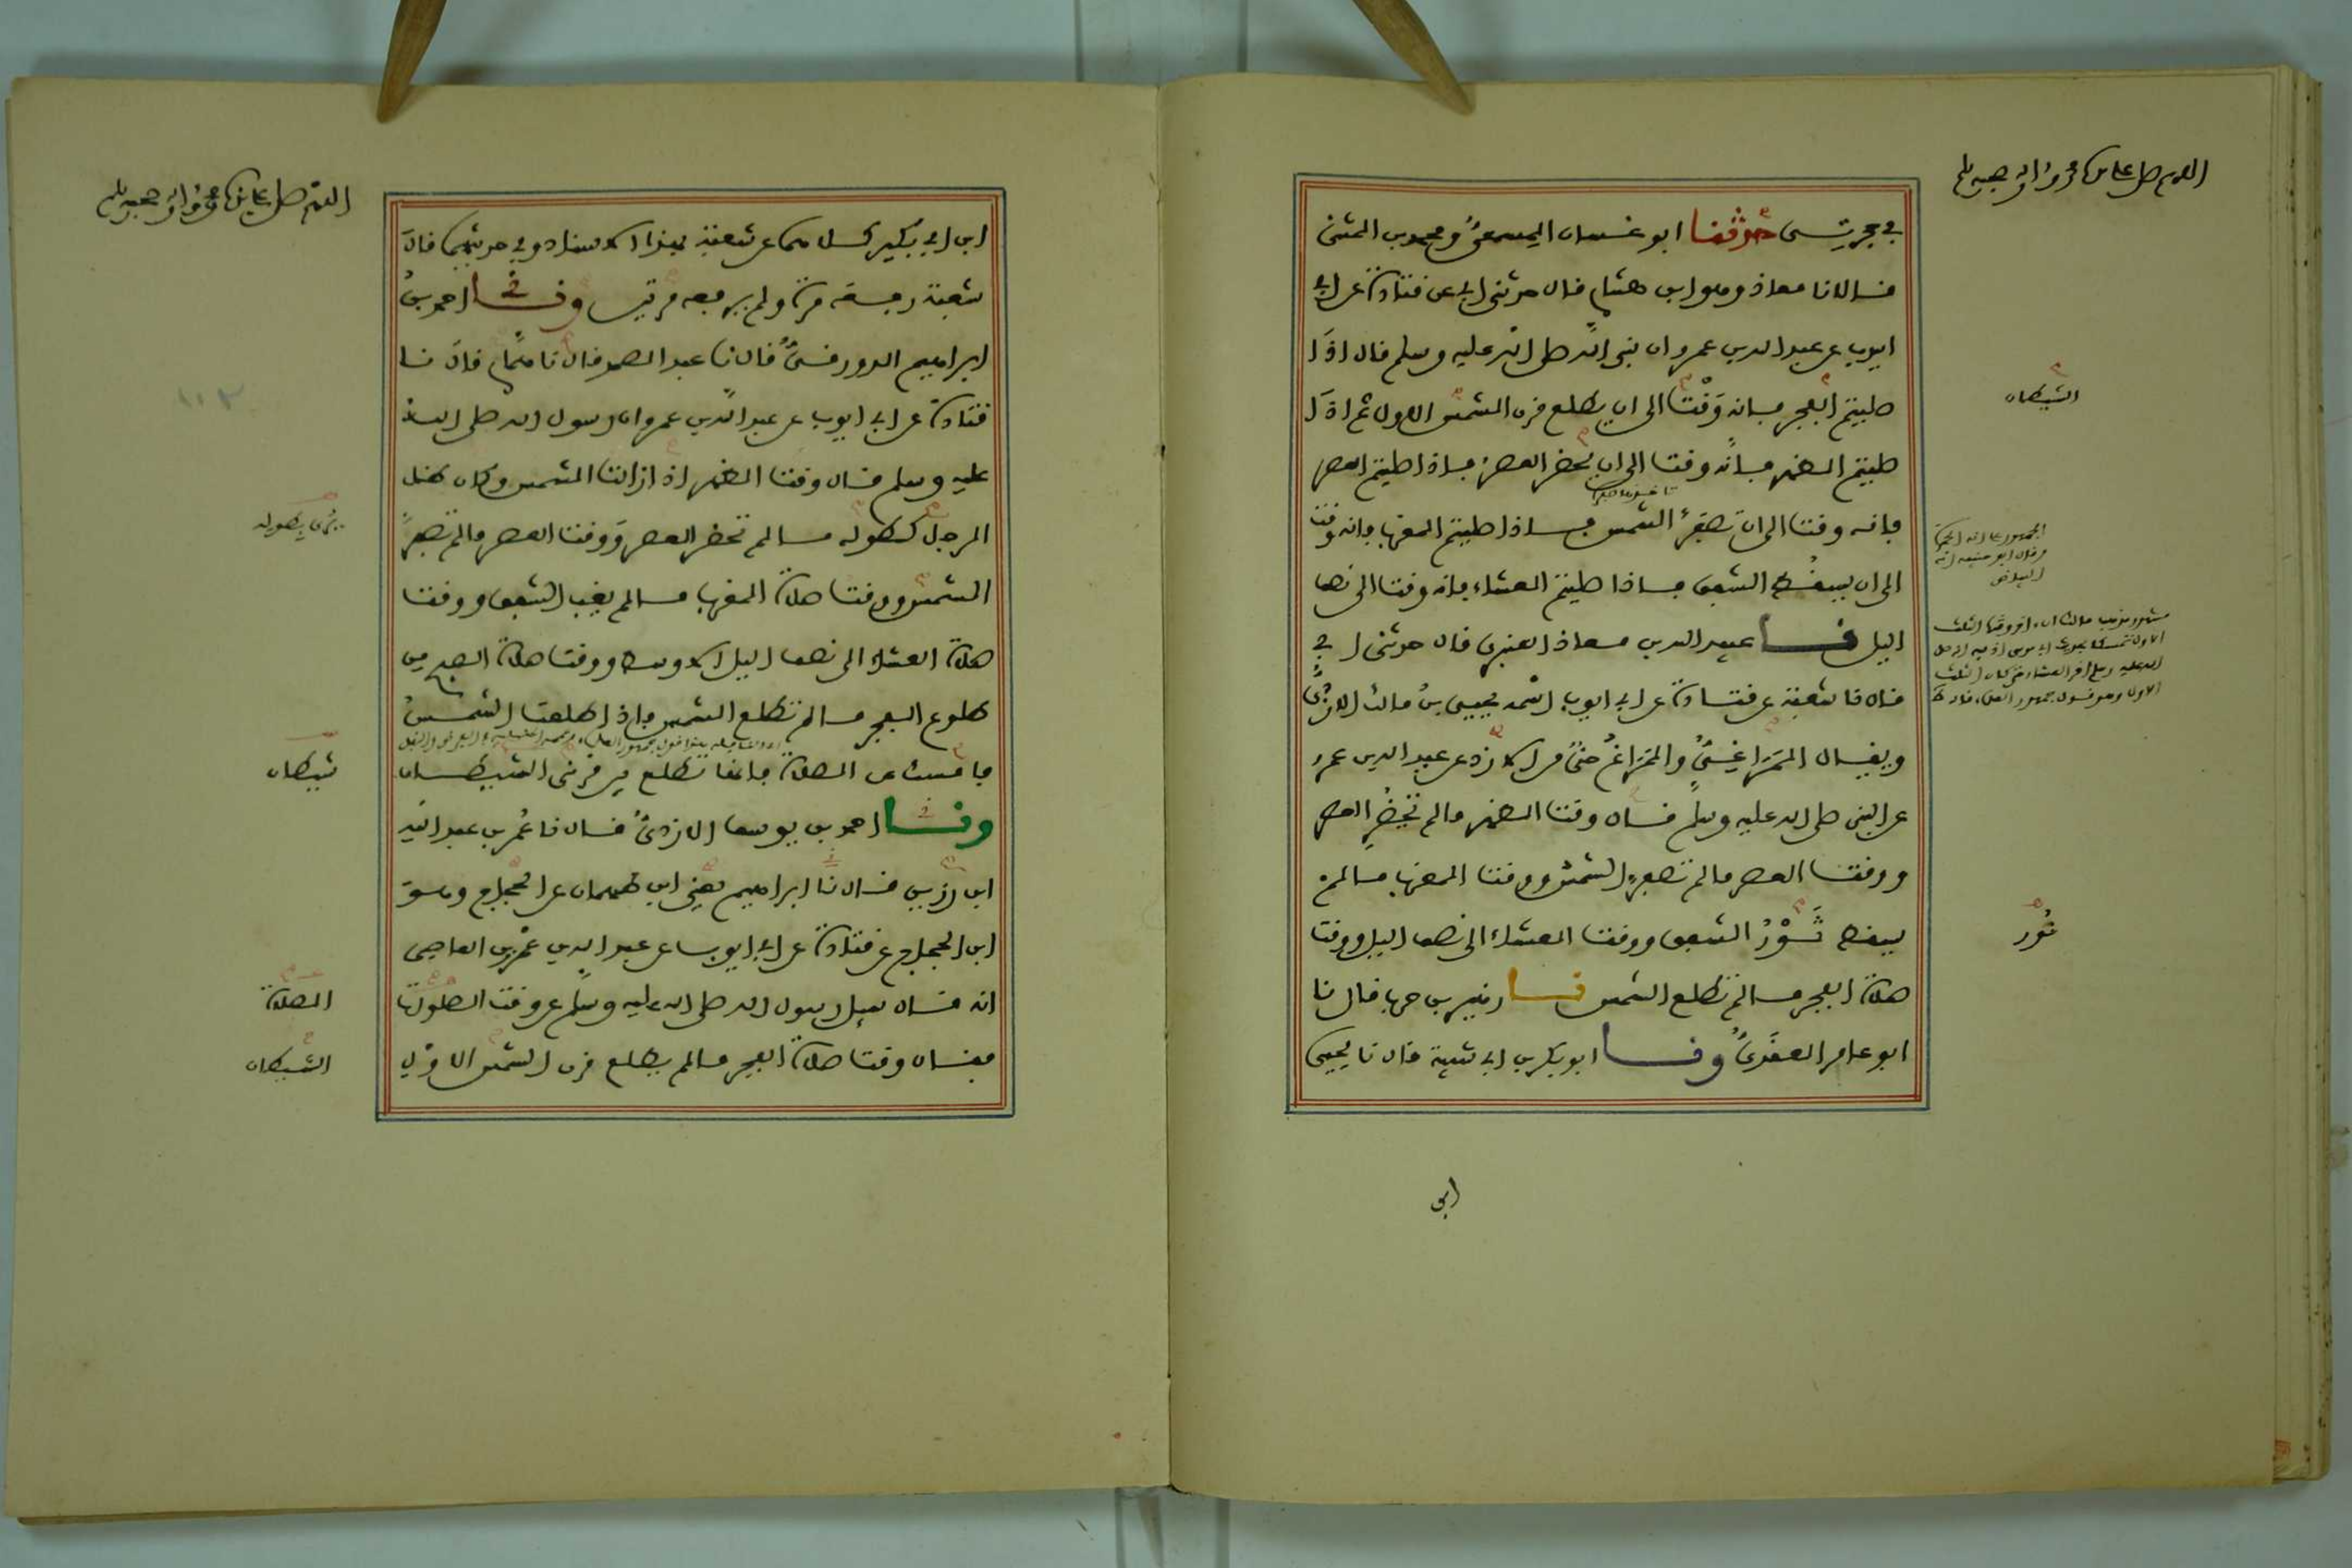 اللهم صل على سيدنا محمد وآله وصحبه وسلم
في حجرتي حدثنا ابو غسان المِسمعيُّ ومحمد بن المثنى
قالا نا معاذ وهو ابن هشام قال حدثني ابي عن قتادة عن ابي
ايوب عن عبد الله بن عمرو ان نبي الله صلى الله عليه وسلم قال اذا
صليتم الفجر فانه وَقْتٌ الى ان يطلع قرن الشمس الاول ثم اذا
صليتم الظهر فانه وقت الى ان يحضر العصر فاذا صليتم العصر
فانه وقت الى ان تصفرَّ الشمس فاذا صليتم المغرب فانه وقت
الى ان يسقُط الشفق فاذا صليتم العشاء فانه وقت الى نصف
اليل نا عبيد الله بن معاذ العنبري قال حدثني ابي
قال نا شعبة عن قتادة عن ابي ايوب اسمه يحيى بنُ مالك الازديُّ
ويقال المَرَاغِيُّ والمَرَاغُ حيٌّ من الازد عن عبد الله بن عمرو
عن النبي صلى الله عليه وسلم قال وقت الظهر ما لم تَحْضُرِ العصر
ووقت العصر ما لم تصفر الشمس ووقت المغرب ما لم
يسقط ثَوْرُ الشفق ووقت العشاء الى نصف اليل ووقت
صلاة الفجر ما لم تطلع الشمس نا زهير بن حرب قال نا
ابو عامر العقَديُّ ونا ابو بكر بن ابي شيبة قال نا يحيى
ابي
الشيطان
الجمهور على انه الحمرة
وقال ابو حنيفة انه
البياض
ثور
اللهم صل على سيدنا محمد وآله وصحبه وسلم
ابن ابي بكير كلاهما عن شعبة بهذا الاسناد وفي حديثهما قال
شعبة رفعه مرة ولم يرفعه مرتين ونا احمد بنُ
ابراهيم الدورقيُّ قال نا عبد الصمد قال نا همّام قال نا
قتادة عن ابي ايوب عن عبد الله بن عمرو ان رسول الله صلى الله
عليه وسلم قال وقت الظهر اذا زالت الشمس وكان ظل
الرجل كطوله ما لم تحضر العصر وَوقت العصر ما لم تصفرّ
الشمس ووقت صلاة المغرب ما لم يغب الشفق ووقت
صلاة العشاء الى نصف اليل الاوسط ووقت صلاة الصبح من
طلوع الفجر ما لم تطلع الشمس فاذا طلعت الشمسُ
فامسك عن الصلاة فانها تطلع بين قرني الشيطان
ونا احمد بن يوسف الازديُّ قال نا عُمر بن عبد الله
ابن رَزين قال نا ابراهيم يعني ابن طهمان عن الحجاج وهو
ابن الحجاج عن قتادة عن ابي ايوب عن عبد الله بن عمْرو بن العاصي
انه قال سيل رسول الله صلى الله عليه وسلم عن وقت الصلوات
فقال وقت صلاة الفجر ما لم يطلع قرن الشمس الاول
شيطان
الصلاة
الشيطان